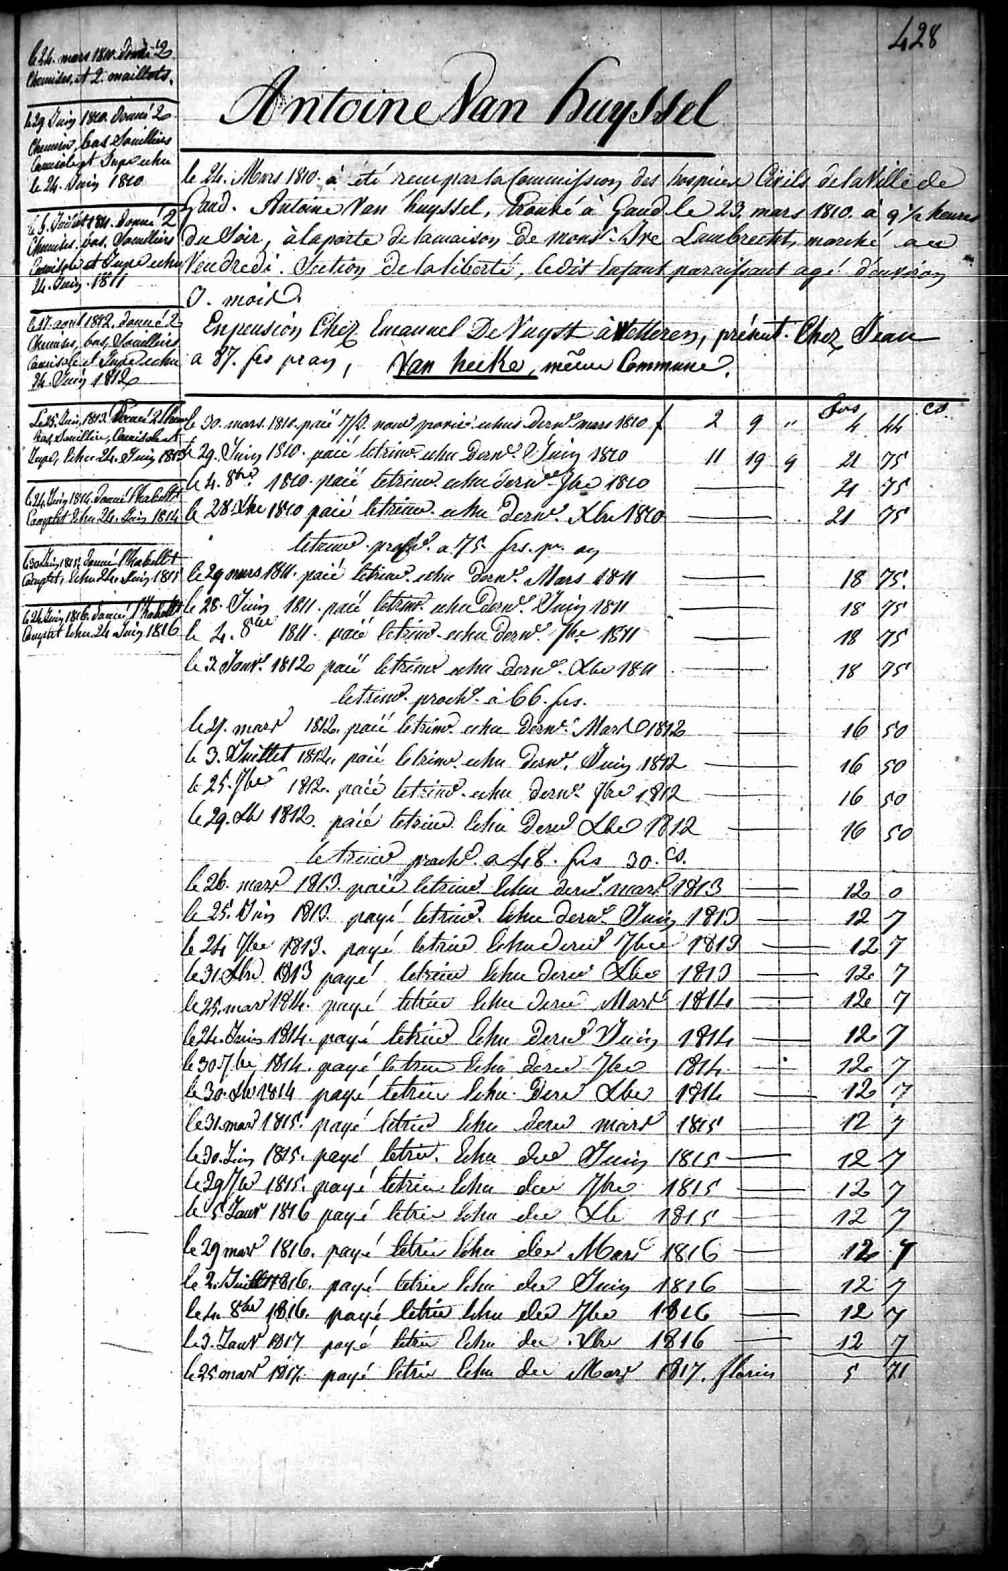 428
Antoine Van huyssel
le 24. mars 1810. donné 2
Chemises, et 2. maillots.
le 29 Juin 1810. donné 2
Chemises, bas, Souilliers
Camisole et Jupe echu
le 24. Juin 1810
Juillet 1811. donné 2
Chemises, bas, Souilliers
Camisole et Jupe echu
24. Juin. 1811
avril 1812. donné 2
Chemises, bas, Souilliers
Camisole et Jupe echu
24. Juin 1812
Le 25. Juin 1813. Donné 2
bas, Souillier, Camisole et
Jupe, Echu 24. Juin 1813
le 24 Juin 1814. donné l'habellt
Complet Echu 24. Juin 1814
le 30 Juin 1815. donné l'habellt
Complet, Echu 24. Juin 1815
le 24 Juin 1816. donné l'habellt
Complet Echu 24 Juin 1816
le 24. Mars 1810. à été reçu par la Commission des hospices Civils de la Ville de
Gand. Antoine Van huyssel, trouvé à Gand le 23. mars 1810. à 9 ½ heures
du Soir, à la porte de la maison de monsr. Lambrecht, marché au
Vendredi. Section de la liberté, ledit Enfant paraissant agé d'environ
mois.
En pension Chez Emanuel De Vuyst à Wetteren, présent. Chez Jean
a 87. frs pr an, Van hecke, même Commune.
frs cs.
le 30. mars. 1810. paié nour echus dernr. mars 1810 f 2 9 " 4 44
le 29. Juin 1810. paié le trimr. echu dernr. Juin 1810 11 19 9 21 75
le 4. 8bre. 1810. paié le trimr. echu dernr. 7bre 1810 21 75
le 28. Xbre 1810 paié le trimr. echu dernr. Xbre 1810 21 75
le trimr. proch. a 75 frs. pr. an
le 29 mars 1811. paié le trimr. echu dernr. Mars 1811 18 75.
le 28. Juin 1811. paié le trimr. echu dernr. Juin 1811 18 75
le 4. 8bre 1811. paié le trimr. echu dernr. 7bre 1811 18 75
le 3. Janvr. 1812 paié le trimr echu dernr. Xbre 1811 18 75
le trimr. prochr. à 66. frs.
le 27. mars 1812. paié le trimr. echu dernr. Mars 1812 16 50
le 3. Juillet 1812. paié le trimr. echu dernr. Juin 1812 16 50
le 25. 7bre 1812. paié le trimr. echu dernr. 7bre 1812 16 50
le 29. Xbr 1812. paié le trimr Echu dernr Xbre 1812 16 50
le trimr prochr. a 48. frs 30. cs.
le 26. mars 1813. paié le trimr. Echu dernr. mars 1813 12 0
le 25. Juin 1813. payé le trimr. Echu dernr. Juin 1813 12 7
le 24 7bre 1813. payé le trimr Echu dernr 7bre 1813 12 7
le 31. Xbre 1813 payé le trimr Echu dernr Xbre 1813 12 7
le 25. mars 1814. payé le trim Echu dern Mars 1814 12 7
le 24. Juin 1814. payé le trimr Echu dernr Juin 1814 12 7
le 30 7bre 1814. payé le trim Echu dern 7bre 1814 12 7
le 30. Xbr 1814 payé le trim Echu Dern Xbre 1814 12 7
le 31. mars 1815. payé le trim Echu dern mars 1815 12 7
le 30. Juin 1815. payé le trim. Echu der Juin 1815 12 7
le 29 7br 1815. payé le trim Echu der 7bre 1815 12 7
le 5 Janvr 1816 payé le trim Echu der Xbr 1815 12 7
le 29 mars 1816. payé le trim Echu der Mars 1816 12 7
le 2. Juillet 1816. payé le trim Echu der Juin 1816 12 7
le 4. 8bre 1816. payé le trim Echu der 7bre 1816 12 7
le 3. Janvr 1817 payé le trim Echu der Xbre 1816 12 7
le 25 mars 1817. payé le trim Echu der Mars 1817. florins 5 71